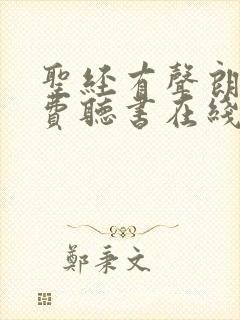 聖經有聲朗
費聽書在綫
鄭秉文